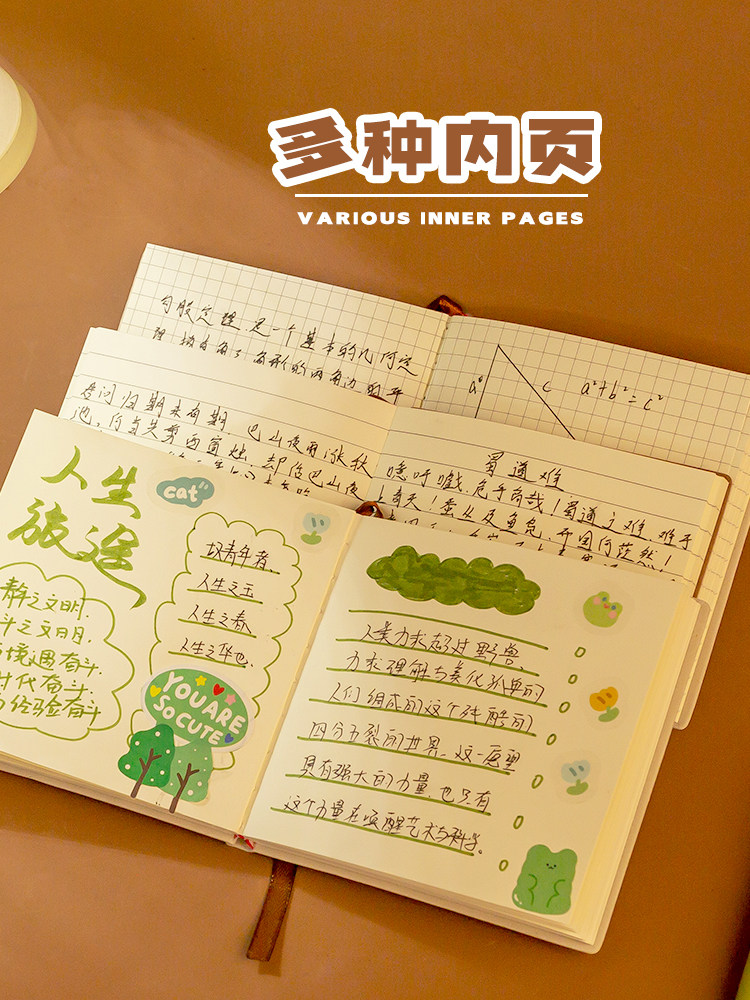 多种内页
VARIOUS INNER PAGES
勾股定理,是一个基本的几何定
理
a
c
a²+b²=c²
君问归期未有期 巴山夜雨涨秋
池,何当共剪西窗烛 却话巴山夜
蜀道难
噫吁嚱,危乎高哉!蜀道之难,难于
上青天!蚕丛及鱼凫,开国何茫然!
人生
旅途
cat
故青年者,
人生之王
人生之春
人生之华也.
静之文明.
斗之文明.
境遇奋斗.
时代奋斗.
经验奋斗
YOU ARE
SO CUTE
人类力求超过野兽、
力求理解与美化孤单的
人们组成的这个残酷的
四分五裂的世界、这一愿望
具有强大的力量,也只有
这个力量在唤醒艺术与科学。